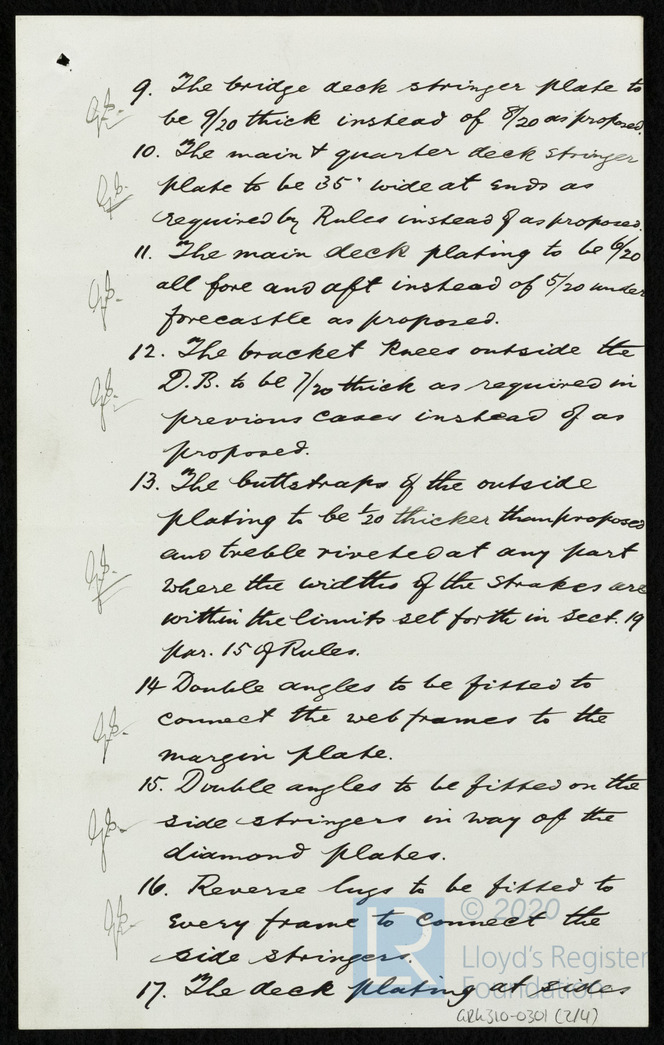 9. The bridge deck stringer plate to
be 9/20 thick instead of 8/20 as proposed.
10. The main & quarter deck stringer
plate to be 35" wide at ends as
required by Rules instead of as proposed.
11. The main deck plating to be 6/20
all fore and aft instead of 5/20 under
forecastle as proposed.
12. The bracket knees outside the
D.B. to be 7/20 thick as required in
previous cases instead of as
proposed.
13. The buttstraps of the outside
plating to be 1/20 thicker than proposed
and treble riveted at any part
where the widths of the strakes are
within the limits set forth in Sect. 19
par. 15 of Rules.
14 Double angles to be fitted to
connect the web frames to the
margin plate.
15. Double angles to be fitted on the
side stringers in way of the
diamond plates.
16. Reverse lugs to be fitted to
every frame to connect the
side stringers.
17. The deck plating at sides
© 2020
Lloyd's Register
Foundation
GRK310-0301 (2/4)